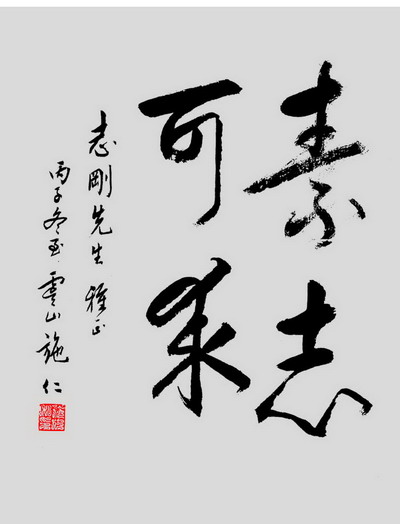 素志
可
志剛先生雅正
丙子冬至雲山施仁